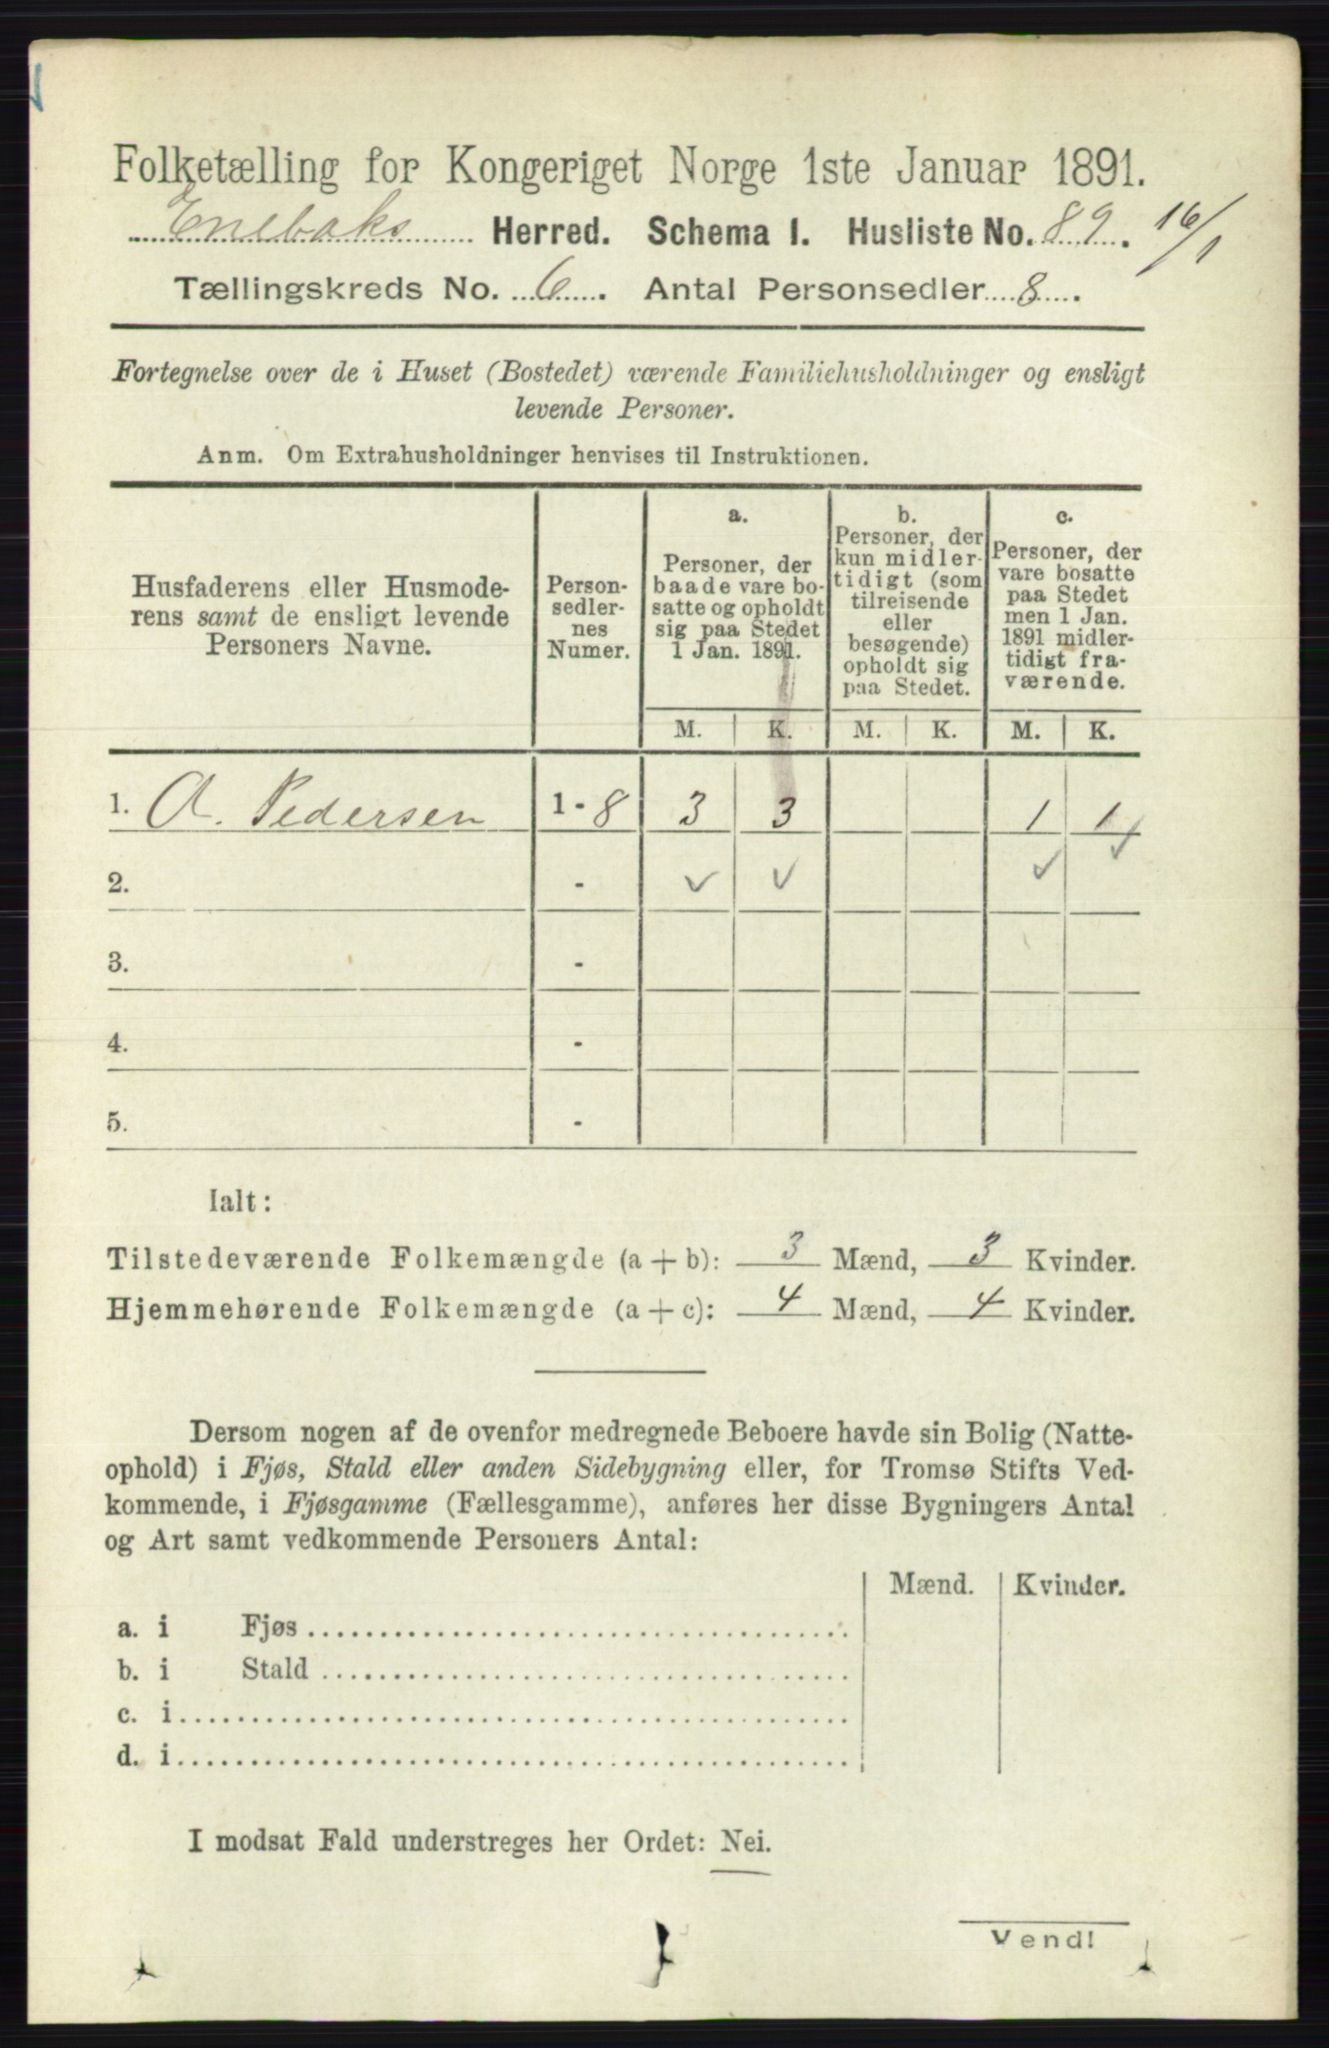 Folketælling for Kongeriget Norge 1ste Januar 1891.
Enebaks Herred. Schema I. Husliste No. 89. 16/1
Tællingskreds No. 6. Antal Personsedler 8.
Fortegnelse over de i Huset (Bostedet) værende Familiehusholdninger og ensligt
levende Personer.
Anm. Om Extrahusholdninger henvises til Instruktionen.
Husfaderens eller Husmode-
rens samt de ensligt levende
Personers Navne.
Person-
sedler-
nes
Numer.
a.
Personer, der
baade vare bo-
satte og opholdt
sig paa Stedet
1 Jan. 1891.
b.
Personer, der
kun midler-
tidigt (som
tilreisende
eller
besøgende)
opholdt sig
paa Stedet.
c.
Personer, der
vare bosatte
paa Stedet
men 1 Jan.
1891 midler-
tidigt fra-
værende.
M. K. M. K. M. K.
1. A. Pedersen 1 - 8 3 3 1 1
2. - ✓ ✓ ✓ ✓
3. -
4. -
5. -
Ialt:
Tilstedeværende Folkemængde (a + b): 3 Mænd, 3 Kvinder.
Hjemmehørende Folkemængde (a + c): 4 Mænd, 4 Kvinder.
Dersom nogen af de ovenfor medregnede Beboere havde sin Bolig (Natte-
ophold) i Fjøs, Stald eller anden Sidebygning eller, for Tromsø Stifts Ved-
kommende, i Fjøsgamme (Fællesgamme), anføres her disse Bygningers Antal
og Art samt vedkommende Personers Antal:
Mænd. Kvinder.
a. i Fjøs
b. i Stald
c. i
d. i
I modsat Fald understreges her Ordet: Nei.
Vend!